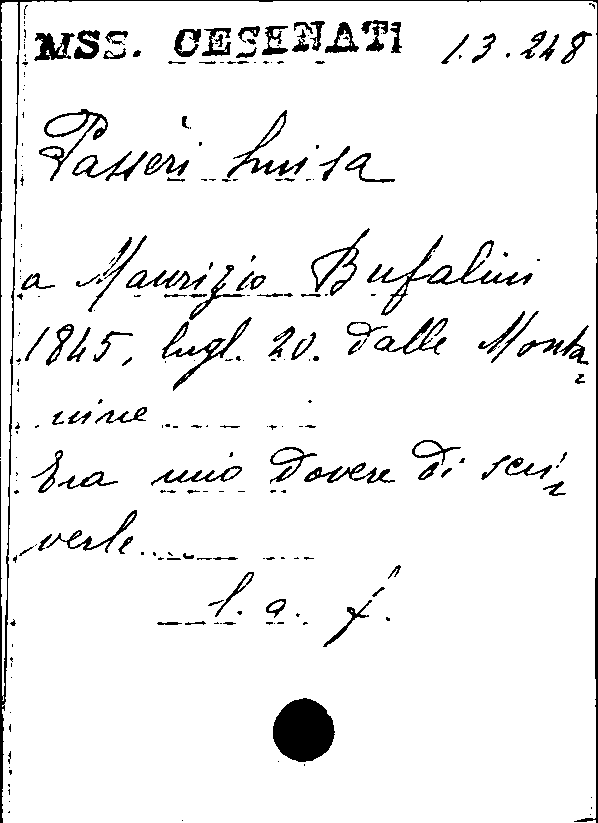 MSS. CESENATI 1.3.248
Passeri Luisa
a Maurizio Bufalini
1845, lugl. 20. dalle Monta-
nine
Era mio dovere di scri-
verle...
l. a. f.